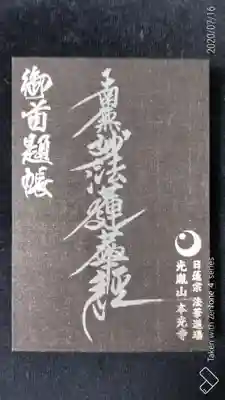 御首題帳
南無妙法蓮華経
日蓮宗 法華道場
光胤山 本光寺
2020/07/16
Taken with ZenFone 4 series